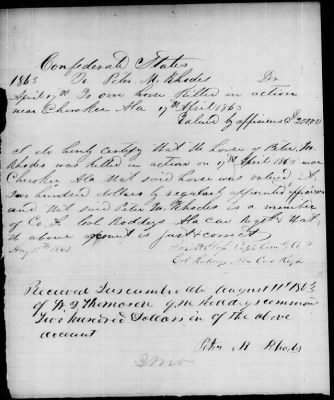 Confederate States
1863 To Peter M. Rhodes Dr
April 17th To one horse Killed in action
near Cherokee Ala 17th April 1863
Valued by appraisers $200.00
I do hereby certify that the horse of Peter M.
Rhodes was killed in action on 17th April 1863 near
Cherokee Ala that said horse was valued at
Two hundred dollars by regularly appointed appraisers
and that said Peter M Rhodes is a member
of Co. Col. Roddeys Ala Cav Regt & that
the above account is just & correct
Aug 11th 1863
Col Ala Cav Regt
Received Tuscumbia Ala August 11th 1863
of W. J. Thomason Q.M. Roddeys command
Two hundred Dollars in of the above
account
Peter M Rhodes